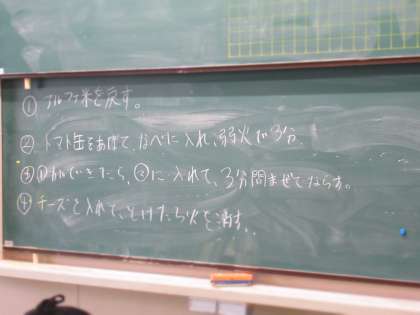 ① アルファ米を戻す。
② トマト缶をあけて、なべに入れ、弱火で3分
③ ①ができたら、②に入れて、3分間まぜてならす。
④ チーズを入れて、とけたら火を消す。